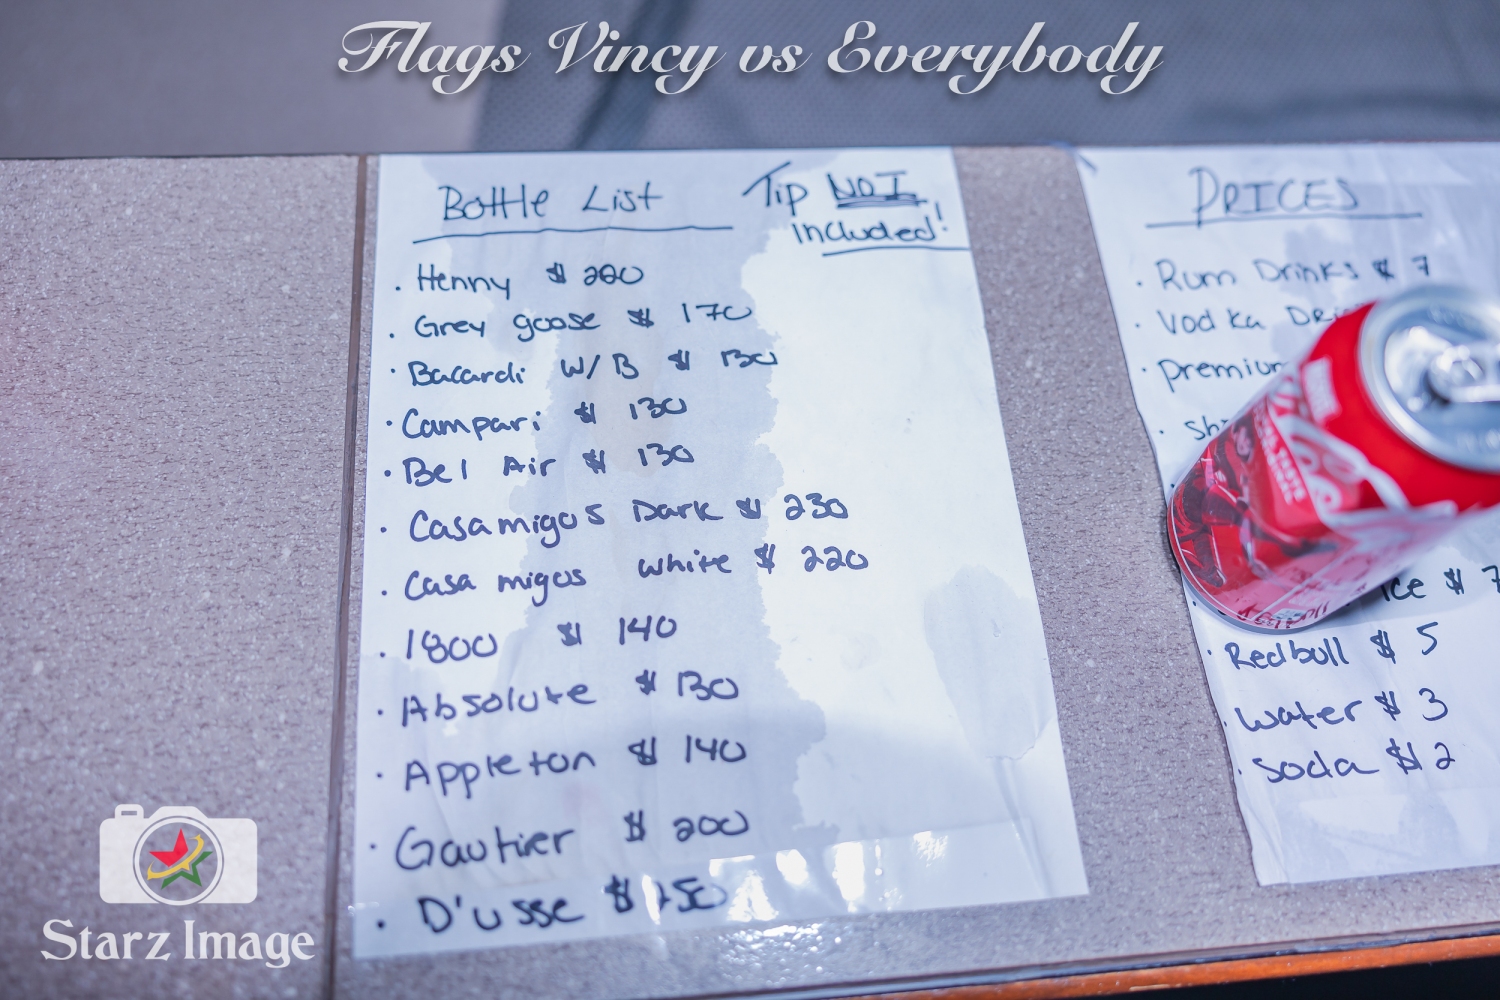 Flags Vincy vs Everybody
Bottle List
Tip NOT
included!
. Henny $ 200
. Grey goose $ 170
. Bacardi W/B $ 130
. Campari $ 130
. Bel Air $ 130
. Casamigos Dark $ 230
. Casa migos white $ 220
. 1800 $ 140
. Absolute $ 130
. Appleton $ 140
. Gautier $ 200
. D'usse $ 150
PRICES
. Rum Drinks $ 7
. Vodka
. premium
ice $ 7
. Redbull $ 5
. water $ 3
. soda $ 2
Starz Image